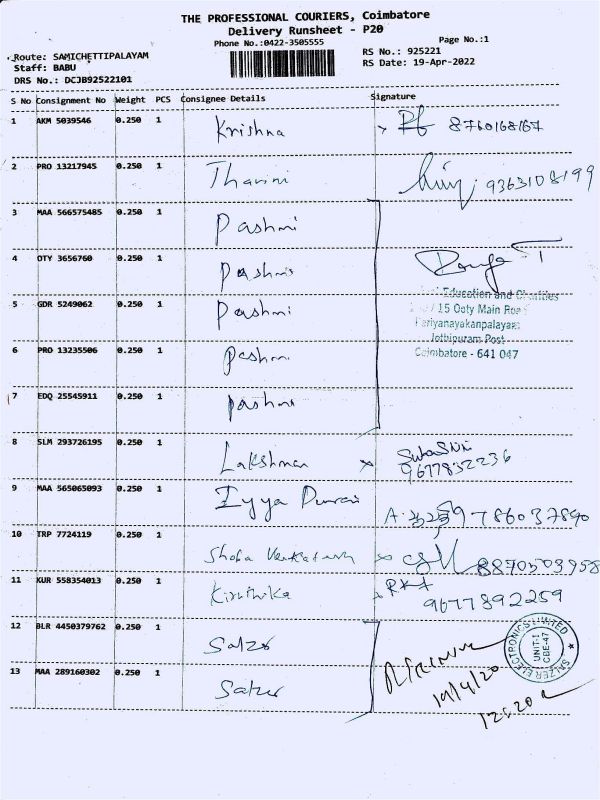 THE PROFESSIONAL COURIERS, Coimbatore
Delivery Runsheet - P20
Phone No.:0422-3505555
Page No.:1
Route: SAMICHETTIPALAYAM
RS No.: 925221
Staff: BABU
RS Date: 19-Apr-2022
DRS No.: DCJB92522101
S No Consignment No Weight PCS Consignee Details Signature
1 AKM 5039546 0.250 1 Krishna 8760168167
2 PRO 13217945 0.250 1 Tharini 9363108199
3 MAA 566575485 0.250 1 Pashmi
4 OTY 3656760 0.250 1 Pashmi
5 GDR 5249062 0.250 1 Pashmi
Education and Charities
15 Ooty Main Road
Periyanayakanpalayam
Jothipuram Post
Coimbatore - 641 047
6 PRO 13235506 0.250 1 Pashmi
7 EDQ 25545911 0.250 1 Pashmi
8 SLM 293726195 0.250 1 Lakshman x
9677832236
9 MAA 565065093 0.250 1 Iyya Durai 9786037890
10 TRP 7724119 0.250 1 Shoba Venkatesh x 8870503958
11 KUR 558354013 0.250 1 Kiruthika
9677892259
12 BLR 4450379762 0.250 1 Salzer
13 MAA 289160302 0.250 1 Salzer
19/4/20
SALZER ELECTRONICS LIMITED
UNIT-I
CBE-47